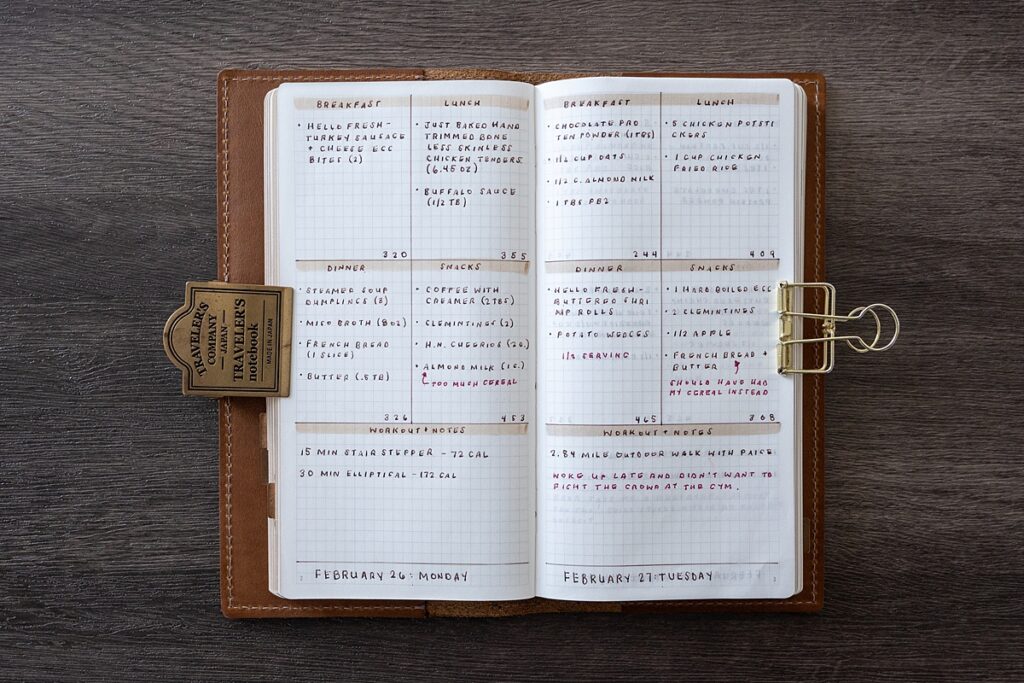 TRAVELER'S
COMPANY
JAPAN
TRAVELER'S
notebook
MADE IN JAPAN
BREAKFAST
• HELLO FRESH -
TURKEY SAUSAGE
+ CHEESE EGG
BITES (2)
320
LUNCH
• JUST BAKED HAND
TRIMMED BONE
LESS SKINLESS
CHICKEN TENDERS
(6.45 OZ)
• BUFFALO SAUCE
(1/2 TB)
355
DINNER
• STEAMED SOUP
DUMPLINGS (8)
• MISO BROTH (8OZ)
• FRENCH BREAD
(1 SLICE)
• BUTTER (.5TB)
326
SNACKS
• COFFEE WITH
CREAMER (2TBS)
• CLEMINTINGS (2)
• H.N. CHEERIOS (2C.)
• ALMOND MILK (1C.)
TOO MUCH CEREAL
453
WORKOUT + NOTES
15 MIN STAIR STEPPER - 72 CAL
30 MIN ELLIPTICAL - 172 CAL
FEBRUARY 26: MONDAY
BREAKFAST
• CHOCOLATE PRO
TEN POWDER (1TBS)
• 1/4 CUP OATS
• 1/2 C. ALMOND MILK
• 1 TBS PB2
244
LUNCH
• 5 CHICKEN POTSTI
CKERS
• 1 CUP CHICKEN
FRIED RICE
409
DINNER
• HELLO FRESH -
BUTTERED SHRI
MP ROLLS
• POTATO WEDGES
SERVING
465
SNACKS
• 1 HARD BOILED EGG
• 2 CLEMINTINGS
• 1/2 APPLE
• FRENCH BREAD +
BUTTER
SHOULD HAVE HAD
MY CEREAL INSTEAD
308
WORKOUT + NOTES
2.84 MILE OUTDOOR WALK WITH PAIGE
WOKE UP LATE AND DIDN'T WANT TO
FIGHT THE CROWD AT THE GYM.
FEBRUARY 27: TUESDAY